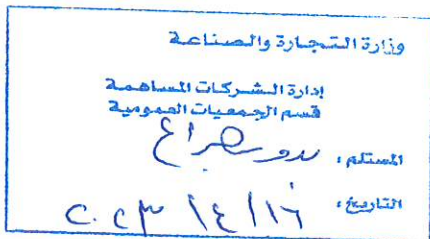 وزارة التجارة والصناعة
إدارة الشركات المساهمة
قسم الجمعيات العمومية
المستلم :
التاريخ : ٢٠٢٣ /٤/١٦